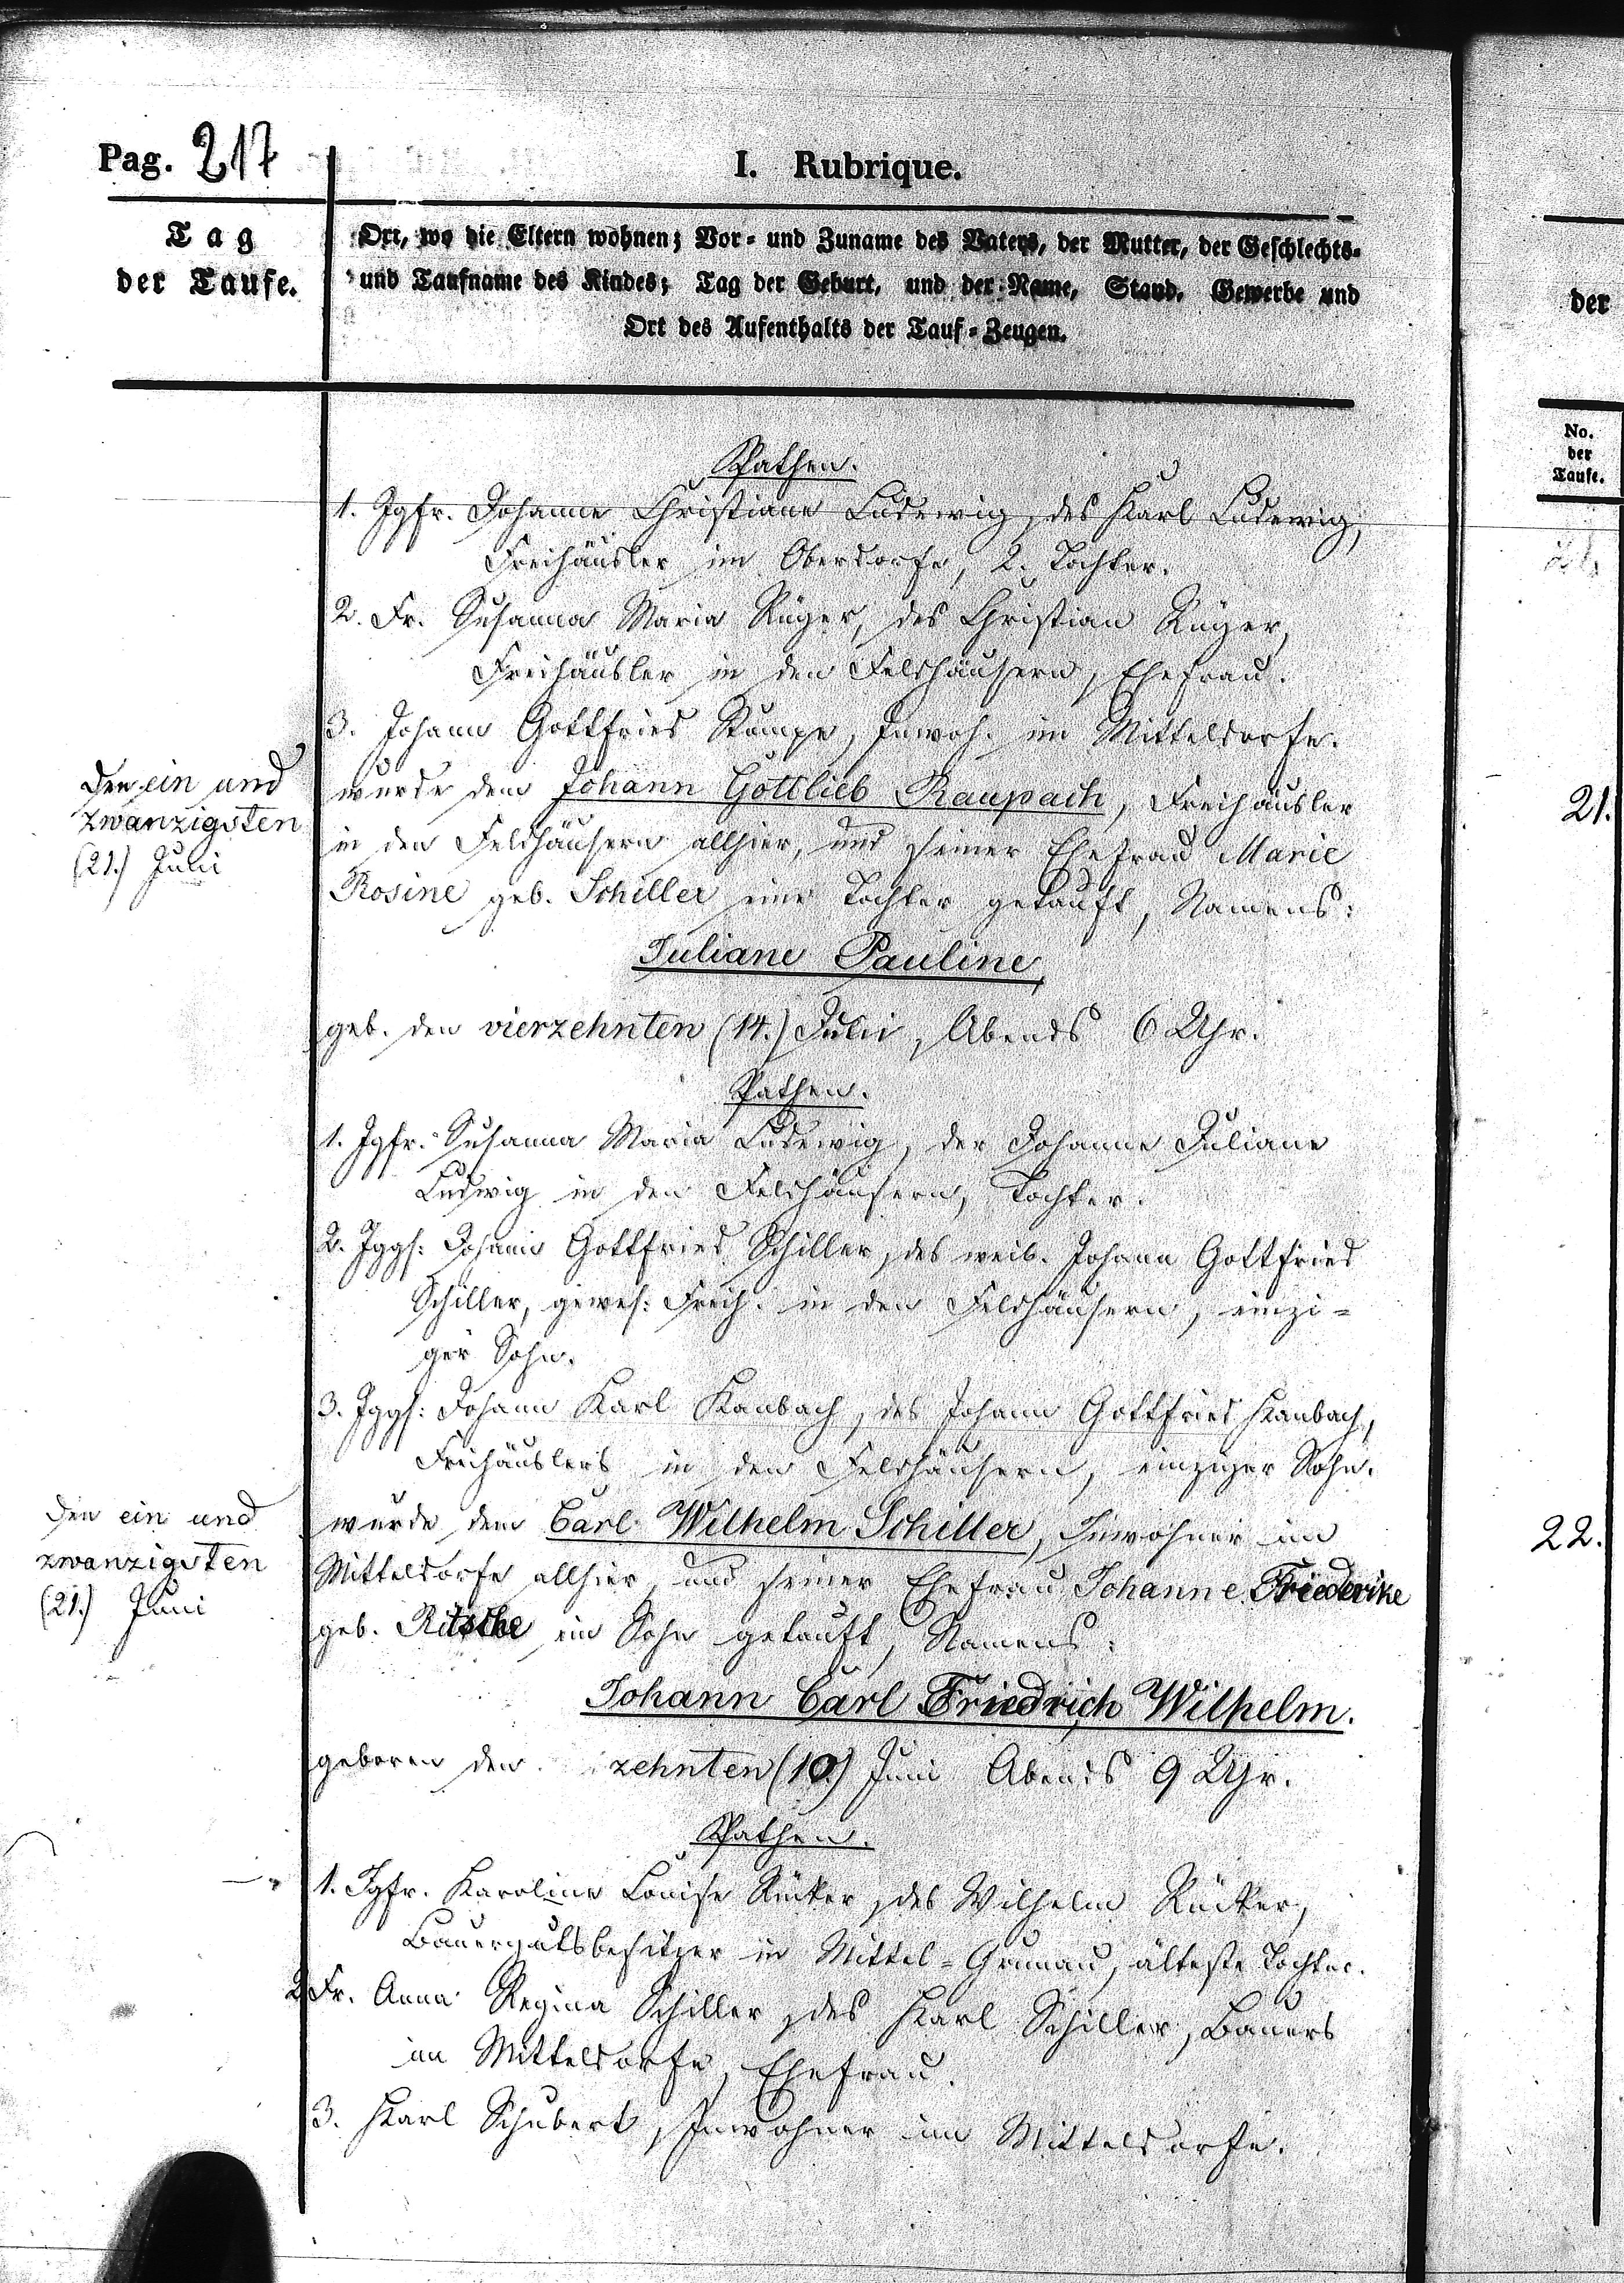 Pag. 217
I. Rubrique.
Tag
der Taufe.
Ort, wo die Eltern wohnen; Vor- und Zuname des Vaters, der Mutter, der Geschlechts-
und Taufname des Kindes; Tag der Geburt, und der Name, Stand, Gewerbe und
Ort des Aufenthalts der Tauf-Zeugen.
Pathen.
1. Jgfr. Johanne Christiane Ludewig, des Karl Ludewig,
Freihäusler im Oberdorfe, 2. Tochter.
2. Fr. Susanna Maria Rüger, des Christian Rüger,
Freihäusler in den Feldhäusern, Ehefrau.
3. Johann Gottfried Stumpe, Inwoh. im Mitteldorfe.
Den ein und
zwanzigsten
(21.) Juli
wurde dem Johann Gottlieb Raupach, Freihäusler
in den Feldhäusern allhier, und seiner Ehefrau Marie
Rosine geb. Schiller eine Tochter getauft, Namens:
Juliane Pauline,
geb. den vierzehnten (14.) Juli, Abends 6 Uhr.
Pathen.
1. Jgfr. Susanna Maria Ludewig, der Johanne Juliane
Ludwig in den Feldhäusern, Tochter.
2. Jggs: Johann Gottfried Schiller, des weil. Johann Gottfried
Schiller, gewes: Freih. in den Feldhäusern, einzi-
ger Sohn.
3. Jggs: Johann Karl Kambach, des Johann Gottfried Kambach,
Freihäuslers in den Feldhäusern, einziger Sohn.
Den ein und
zwanzigsten
(21.) Juni
wurde dem Carl Wilhelm Schiller, Inwohner im
Mitteldorfe allhier, und seiner Ehefrau Johanne Friederike
geb. Ritsche ein Sohn getauft, Namens:
Johann Carl Friedrich Wilhelm.
geboren den zehnten (10.) Juni Abends 9 Uhr.
Pathen.
1. Jgfr. Karoline Louise Rücker, des Wilhelm Rücker,
Bauergutsbesitzer in Mittel-Grunau, älteste Tochter.
2. Fr. Anna Regina Schiller, des Karl Schiller, Bauers
im Mitteldorfe, Ehefrau.
3. Karl Schubert, Inwohner im Mitteldorfe.
der
No.
der
Taufe.
21.
22.